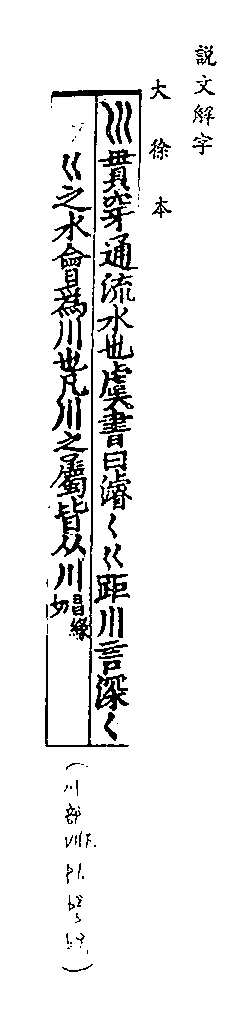 說文解字
大徐本
巛貫穿通流水也虞書曰濬〈巜距川言深〈
巜之水會爲川也凡川之屬皆从川昌緣切